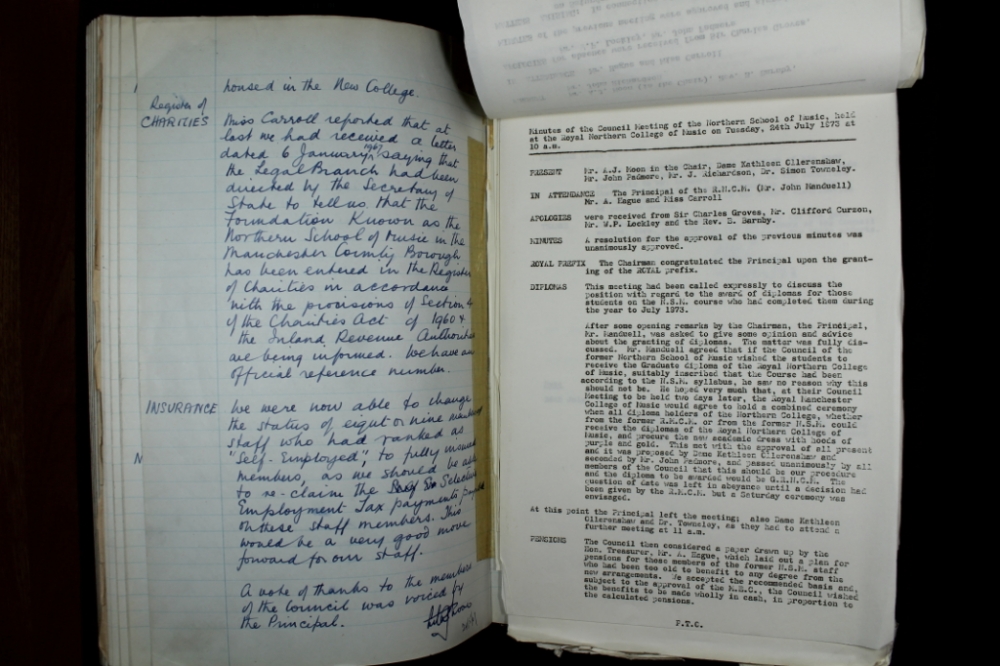 housed in the New College.
Register of
CHARITIES
Miss Carroll reported that at
last we had received a letter
dated 6 January 1967 saying that
the Legal Branch had been
directed by the Secretary of
State to tell us that the
Foundation Known as the
Northern School of Music in the
Manchester County Borough
has been entered in the Register
of Charities in accordance
with the provisions of Section 4
of the Charities Act of 1960 &
the Inland Revenue Authorities
are being informed. We have an
official reference number.
INSURANCE
We were now able to change
the status of eight or nine members
staff who had ranked as
"Self-Employed", to fully insured
members, as we should be able
to re-claim the Selective
Employment Tax payments
on these staff members. This
would be a very good move
forward for our staff.
A vote of thanks to the members
of the Council was voiced by
the Principal.
Minutes of the Council Meeting of the Northern School of Music, held
at the Royal Northern College of Music on Tuesday, 24th July 1973 at
10 a.m.
PRESENT Mr. A.J. Moon in the Chair, Dame Kathleen Ollerenshaw,
Mr. John Padmore, Mr. J. Richardson, Dr. Simon Towneley.
IN ATTENDANCE The Principal of the R.N.C.M. (Mr. John Manduell)
Mr. A. Hague and Miss Carroll
APOLOGIES were received from Sir Charles Groves, Mr. Clifford Curzon,
Mr. W.P. Lockley and the Rev. E. Barnby.
MINUTES A resolution for the approval of the previous minutes was
unanimously approved.
ROYAL PREFIX The Chairman congratulated the Principal upon the grant-
ing of the ROYAL prefix.
DIPLOMAS This meeting had been called expressly to discuss the
position with regard to the award of diplomas for those
students on the N.S.M. course who had completed them during
the year to July 1973.
After some opening remarks by the Chairman, the Principal,
Mr. Manduell, was asked to give some opinion and advice
about the granting of diplomas. The matter was fully dis-
cussed. Mr. Manduell agreed that if the Council of the
former Northern School of Music wished the students to
receive the Graduate diploma of the Royal Northern College
of Music, suitably inscribed that the Course had been
according to the N.S.M. syllabus, he saw no reason why this
should not be. He hoped very much that, at their Council
Meeting to be held two days later, the Royal Manchester
College of Music would agree to hold a combined ceremony
when all diploma holders of the Northern College, whether
from the former R.M.C.M. or from the former N.S.M. could
receive the diplomas of the Royal Northern College of
Music, and procure the new academic dress with hoods of
purple and gold. This met with the approval of all present
and it was proposed by Dame Kathleen Ollerenshaw and
seconded by Mr. John Padmore, and passed unanimously by all
members of the Council that this should be our procedure
and the diploma to be awarded would be G.R.N.C.M. The
question of date was left in abeyance until a decision had
been given by the R.M.C.M. but a Saturday ceremony was
envisaged.
At this point the Principal left the meeting; also Dame Kathleen
Ollerenshaw and Dr. Towneley, as they had to attend a
further meeting at 11 a.m.
PENSIONS The Council then considered a paper drawn up by the
Hon. Treasurer, Mr. A. Hague, which laid out a plan for
pensions for those members of the former N.S.M. staff
who had been too old to benefit to any degree from the
new arrangements. We accepted the recommended basis and,
subject to the approval of the M.E.C., the Council wished
the benefits to be made wholly in cash, in proportion to
the calculated pensions.
P.T.O.